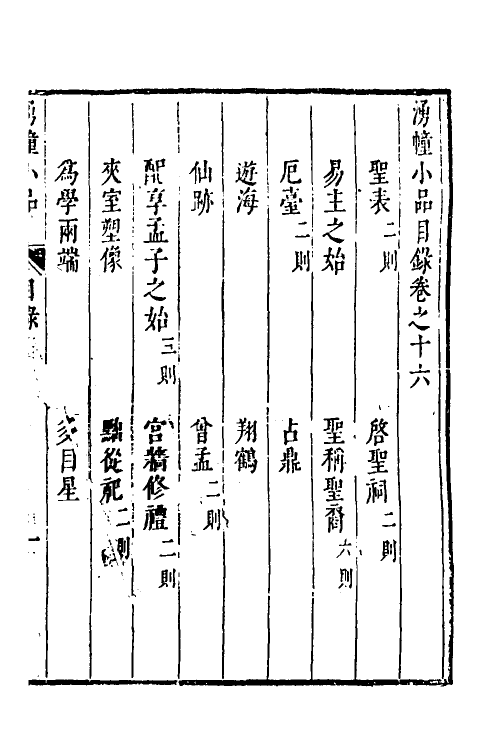 湧幢小品目錄卷之十六
聖表二則 啓聖祠二則
易主之始 聖稱聖裔六則
厄臺二則 占鼎
遊海 翔鶴
仙跡 曾孟二則
配享孟子之始三則 宮牆修禮二則
夾室塑像 黜從祀二則
爲學兩端 目星
湧幢小品 目錄